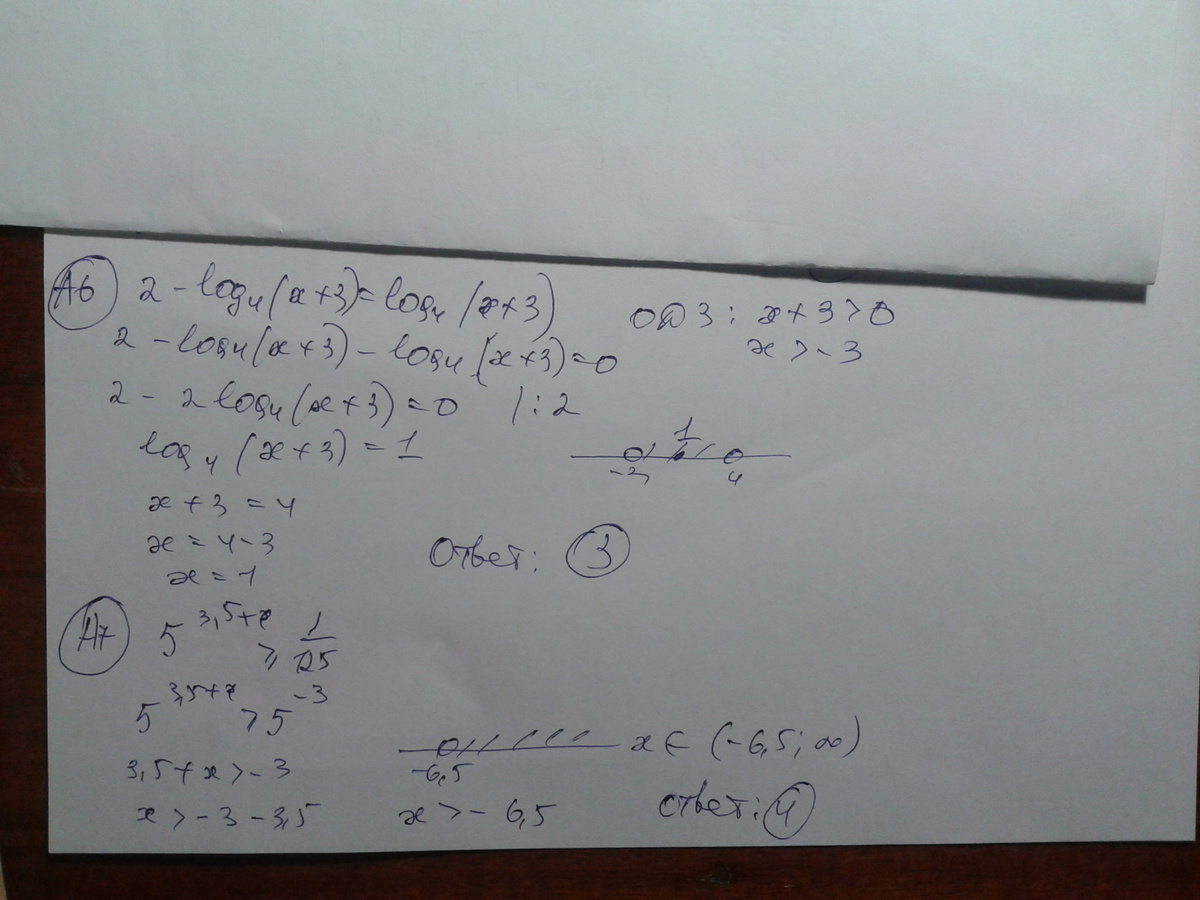 А6 2 - log₄(x+3) = log₄(x+3)
ОДЗ: x+3>0
2 - log₄(x+3) - log₄(x+3) = 0
x > -3
2 - 2log₄(x+3) = 0 | : 2
log₄(x+3) = 1
1
-3 4
x+3 = 4
x = 4-3
Ответ: 3
x = 1
А7 5^(3,5+x) ⩾ 1/125
5^(3,5+x) > 5^(-3)
-6,5 x ∈ (-6,5; ∞)
3,5+x > -3
x > -3 -3,5 x > -6,5 Ответ: 4